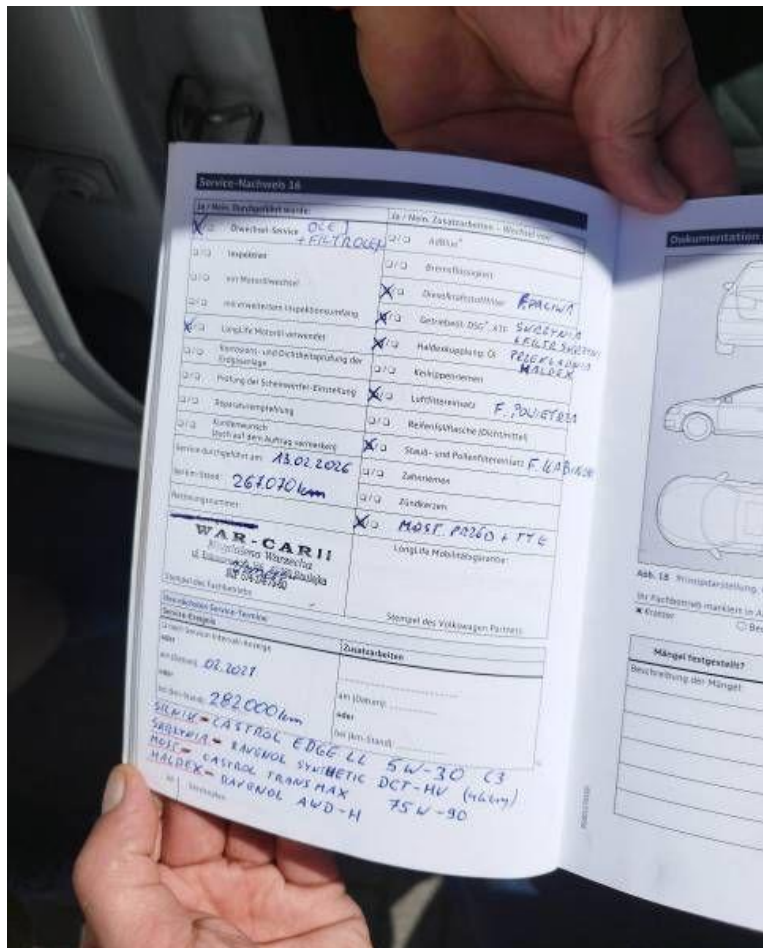 Service-Nachweis 16
Ja / Nein. Durchgeführt wurde:
Ölwechsel-Service OLEJ
+ FILTR OLEJU
Inspektion
mit Motorölwechsel
mit erweitertem Inspektionsumfang
LongLife Motoröl verwendet
Korrosions- und Dichtheitsprüfung der
Erdgasanlage
Prüfung der Scheinwerfer-Einstellung
Reparaturempfehlung
Kundenwunsch
(Auch auf dem Auftrag vermerken)
Service durchgeführt am: 13.02.2026
bei km-Stand: 267.070 km
Rechnungsnummer:
WAR-CAR II
Magdalena Warzecha
Stempel des Fachbetriebs
Ja / Nein. Zusatzarbeiten - Wechsel von:
AdBlue®
Bremsflüssigkeit
Dieselkraftstofffilter F. PALIWA
Getriebeöl: DSG® SKRZYNIA
+ FILTR SKRZYNI
Haldexkupplung: Öl PRZEKŁADNIA
HALDEX
Keilrippenriemen
Luftfiltereinsatz F. POWIETRZA
Reifenfüllflasche (Dichtmittel)
Staub- und Pollenfiltereinsatz F. KABINOWY
Zahnriemen
Zündkerzen
MOST. PRZÓD + TYŁ
LongLife Mobilitätsgarantie:
Stempel des Volkswagen Partners
Ihre nächsten Service-Termine:
Service-Ereignis
nach Service-Intervall-Anzeige
oder
am (Datum): 02.2027
oder
bei (km-Stand): 282.000 km
Zusatzarbeiten
am (Datum):
oder
bei (km-Stand):
SILNIK - CASTROL EDGE LL 5W-30 C3
SKRZYNIA - RAVENOL SYNTHETIC DCT-HV
MOST - CASTROL TRANSMAX 75W-90
HALDEX - RAVENOL AWD-H
Serviceplan
Dokumentation
Abb. 18 Prinzipdarstellung,
Ihr Fachbetrieb markiert in
Kratzer
Mängel festgestellt?
Beschreibung der Mängel: